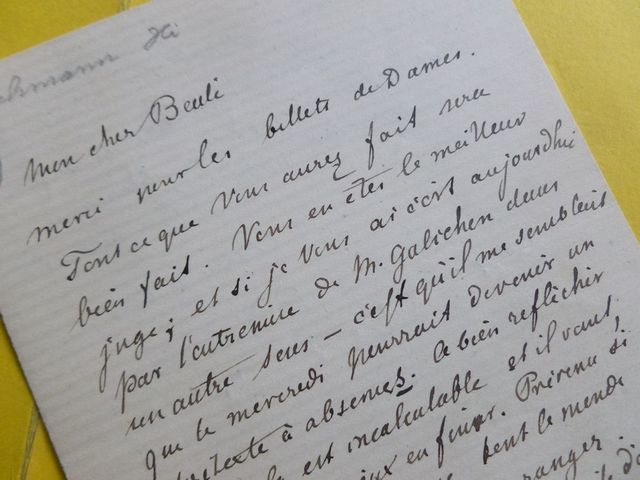 hmann Hi
Mon cher Beulé
merci pour les billets de Dames.
Tout ce que vous aurez fait sera
bien fait. Vous en êtes le meilleur
juge; et si je vous ai écrit aujourdhui
par l'entremise de M. Galichon dans
un autre sens — c'est qu'il me semblait
que le mercredi pourrait devenir un
prétexte à absences. à bien réfléchir
est incalculable et il vaut,
mieux en finir. Prévenu si
tout le monde
ranger.